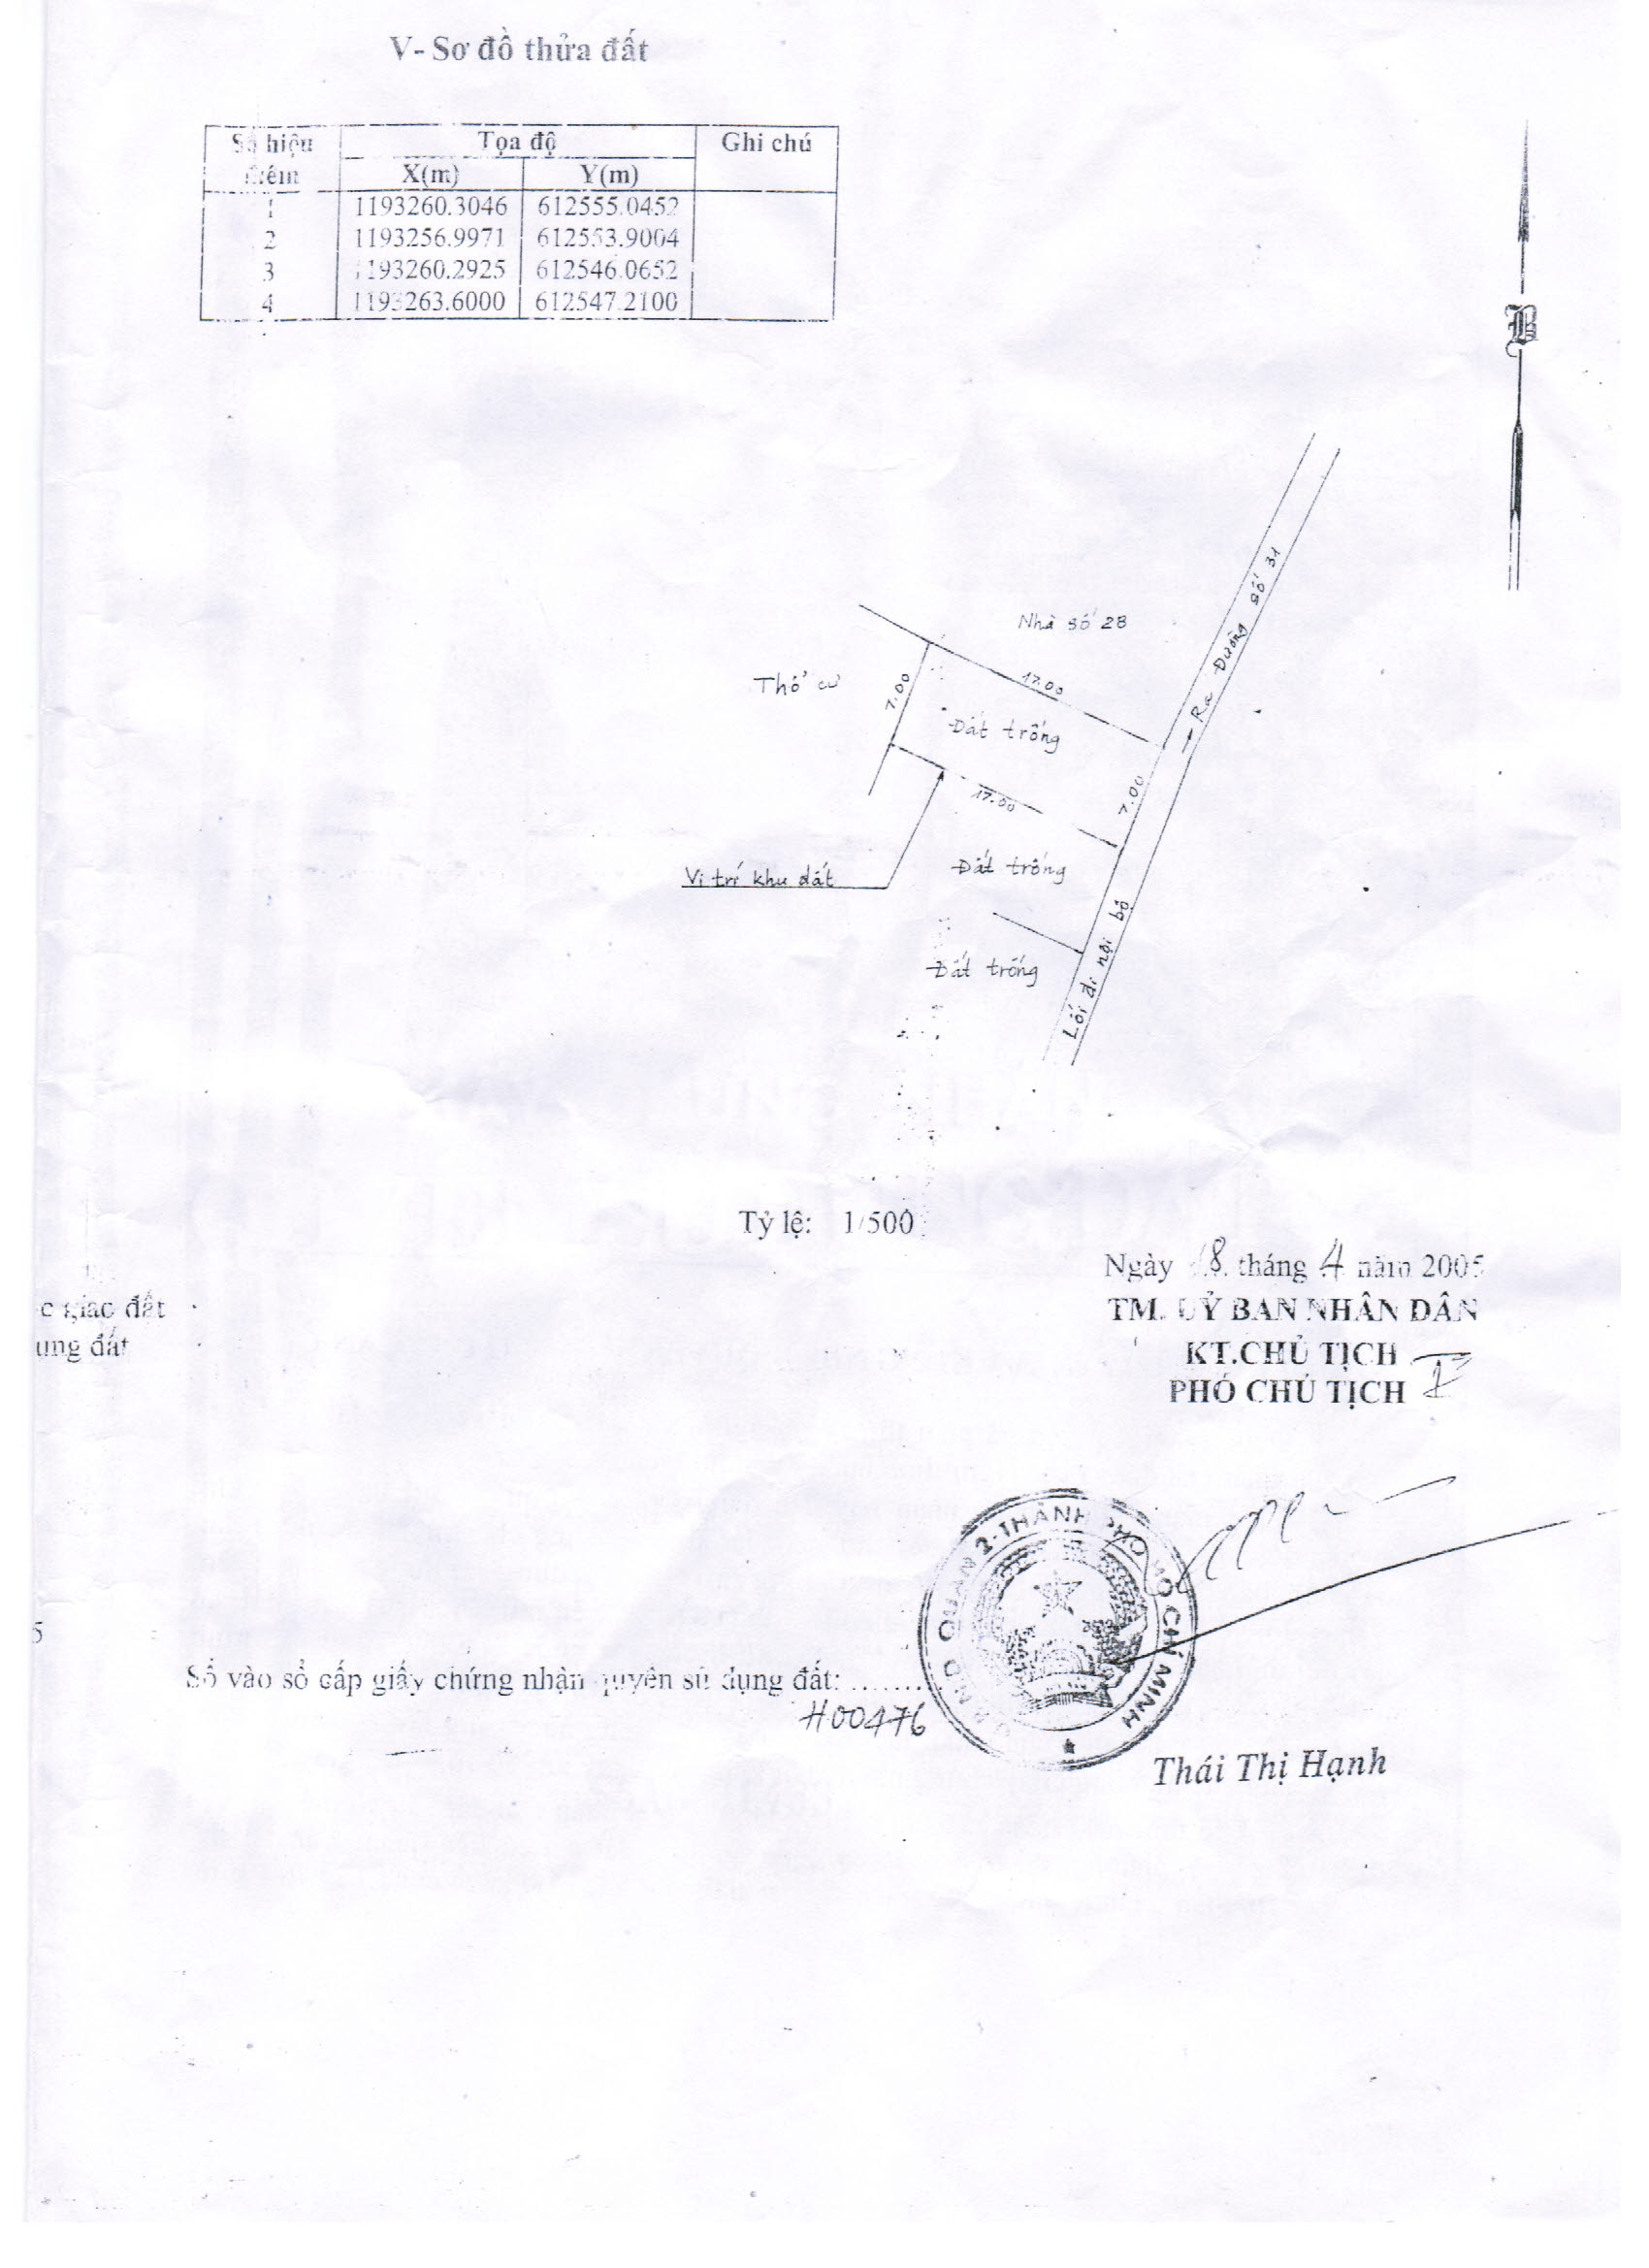 V- Sơ đồ thửa đất
Số hiệu điểm Tọa độ Ghi chú
X(m) Y(m)
1 1193260.3046 612555.0452
2 1193256.9971 612553.9004
3 1193260.2925 612546.0652
4 1193263.6000 612547.2100
B
Nhà số 28
→ Ra Đường số 31
Thổ cư
7.00
17.00
Đất trống
7.00
17.00
Vị trí khu đất
Đất trống
Lối đi nội bộ
Đất trống
Tỷ lệ: 1/500
Ngày 18 tháng 4 năm 2005
TM. UỶ BAN NHÂN DÂN
KT.CHỦ TỊCH
PHÓ CHỦ TỊCH
c giao đất
ung đất
U.B.N.D QUẬN 2-THÀNH PHỐ HỒ CHÍ MINH
5
Số vào sổ cấp giấy chứng nhận quyền sử dụng đất: ........
H00476
Thái Thị Hạnh